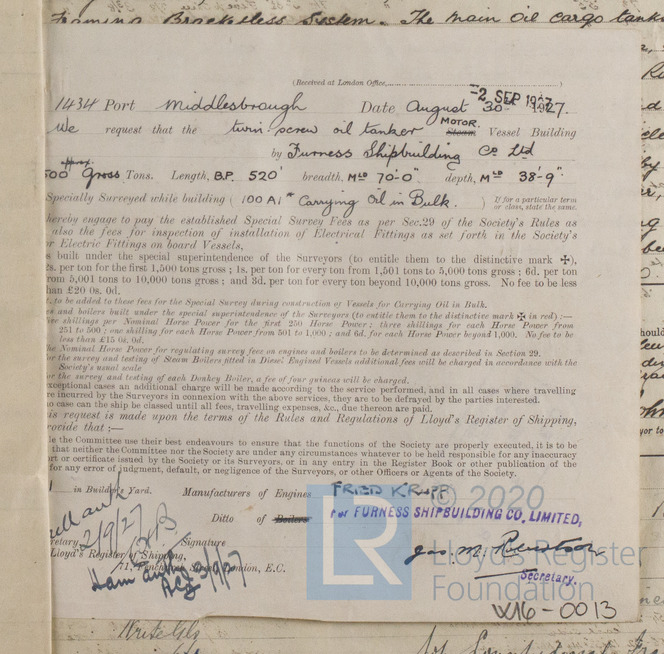 Framing Bracketless System. The main oil cargo tanks
(Received at London Office,
-2 SEP 1927
1434 Port Middlesbrough Date August 30 1927.
We request that the twin screw oil tanker MOTOR Steam Vessel Building
by Furness Shipbuilding Co Ltd
500 Gross Tons. Length, B.P. 520' breadth, Mld 70'-0" depth, Mld 38'-9"
Specially Surveyed while building ( 100 A1 Carrying Oil in Bulk. ) If for a particular term
or class, state the same.
hereby engage to pay the established Special Survey Fees as per Sec.29 of the Society's Rules as
also the fees for inspection of installation of Electrical Fittings as set forth in the Society's
r Electric Fittings on board Vessels,
s built under the special superintendence of the Surveyors (to entitle them to the distinctive mark ✠),
2s. per ton for the first 1,500 tons gross ; 1s. per ton for every ton from 1,501 tons to 5,000 tons gross ; 6d. per ton
rom 5,001 tons to 10,000 tons gross ; and 3d. per ton for every ton beyond 10,000 tons gross. No fee to be less
han £20 0s. 0d.
to be added to these fees for the Special Survey during construction of Vessels for Carrying Oil in Bulk.
es and boilers built under the special superintendence of the Surveyors (to entitle them to the distinctive mark ✠ in red) :—
ve shillings per Nominal Horse Power for the first 250 Horse Power ; three shillings for each Horse Power from
251 to 500 ; one shilling for each Horse Power from 501 to 1,000 ; and 6d. for each Horse Power beyond 1,000. No fee to be
less than £15 0s. 0d.
he Nominal Horse Power for regulating survey fees on engines and boilers to be determined as described in Section 29.
or the survey and testing of Steam Boilers fitted in Diesel Engined Vessels additional fees will be charged in accordance with the
Society's usual scale
or the survey and testing of each Donkey Boiler, a fee of four guineas will be charged.
exceptional cases an additional charge will be made according to the service performed, and in all cases where travelling
re incurred by the Surveyors in connexion with the above services, they are to be defrayed by the parties interested.
o case can the ship be classed until all fees, travelling expenses, &c., due thereon are paid.
is request is made upon the terms of the Rules and Regulations of Lloyd's Register of Shipping,
rovide that :—
le the Committee use their best endeavours to ensure that the functions of the Society are properly executed, it is to be
that neither the Committee nor the Society are under any circumstances whatever to be held responsible for any inaccuracy
rt or certificate issued by the Society or its Surveyors, or in any entry in the Register Book or other publication of the
for any error of judgment, default, or negligence of the Surveyors, or other Officers or Agents of the Society.
in Builders Yard. Manufacturers of Engines FRIED KRUPP
Ditto of Boilers
For FURNESS SHIPBUILDING CO. LIMITED,
2/9/27
retary, Signature
Lloyd's Register of Shipping,
71, Fenchurch Street, London, E.C.
3/9/27
Secretary.
© 2020
LR
Lloyd's Register
Foundation
W16-0013
Write Glz